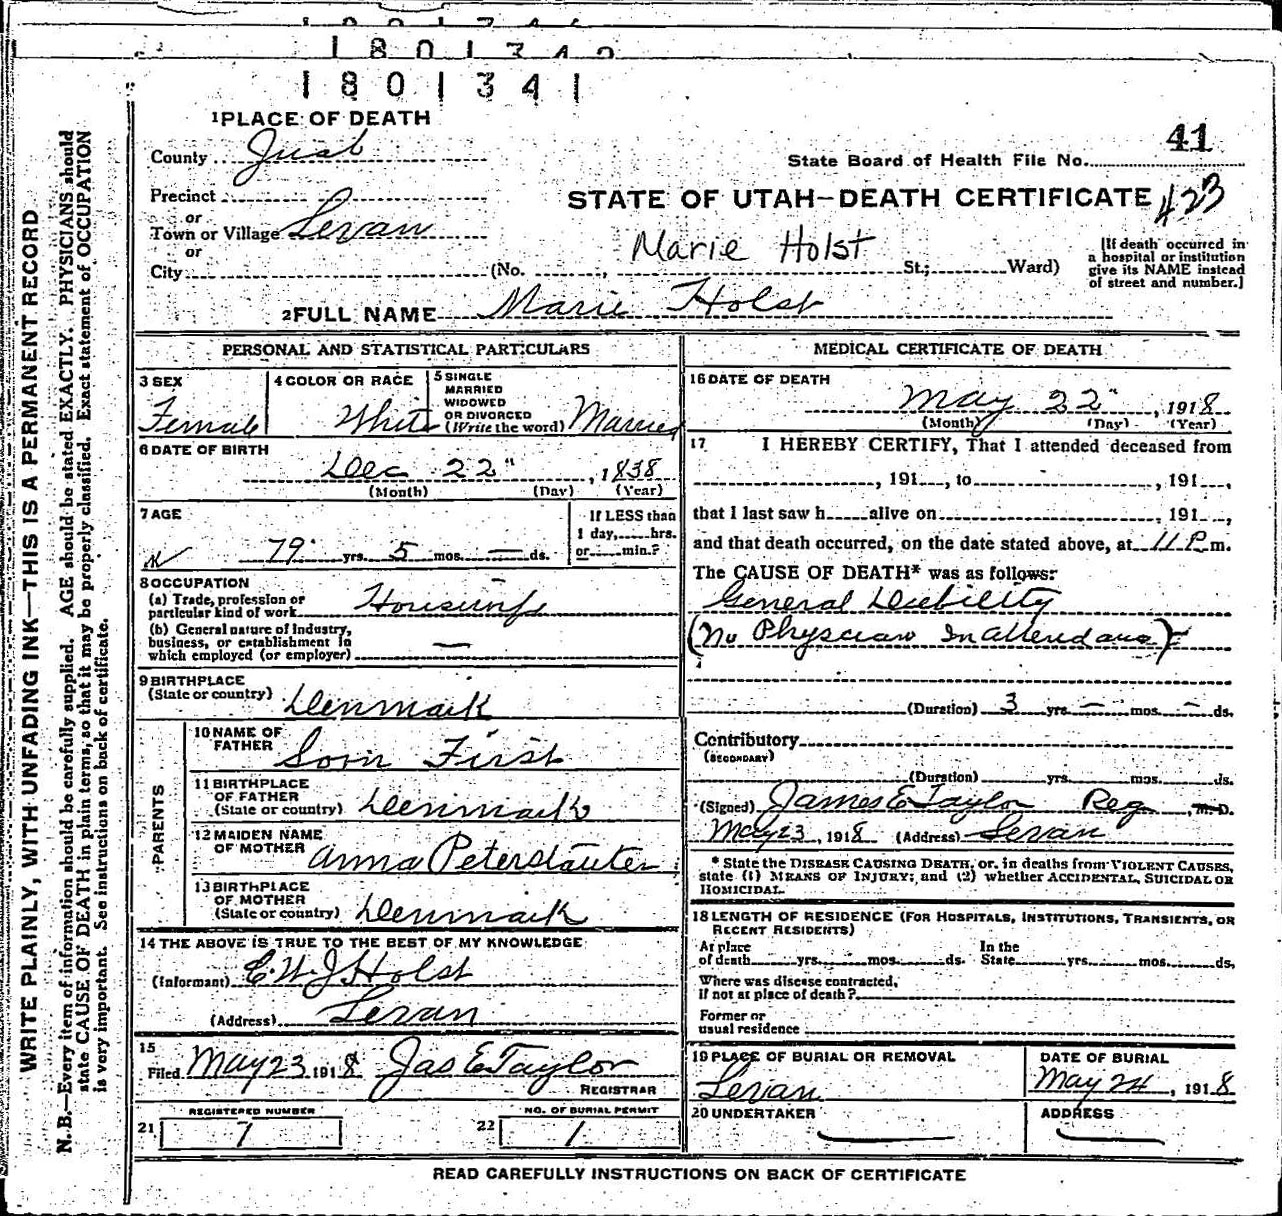 1801342
1801341
WRITE PLAINLY, WITH UNFADING INK—THIS IS A PERMANENT RECORD
N. B.—Every item of information should be carefully supplied. AGE should be stated EXACTLY. PHYSICIANS should
state CAUSE OF DEATH in plain terms, so that it may be properly classified. Exact statement of OCCUPATION
is very important. See instructions on back of certificate.
1 PLACE OF DEATH
41
County Juab
State Board of Health File No.
Precinct
STATE OF UTAH—DEATH CERTIFICATE 423
or
Town or Village Levan
or
Marie Holst
City (No. , St.; Ward)
[If death occurred in
a hospital or institution
give its NAME instead
of street and number.]
2 FULL NAME Marie Holst
PERSONAL AND STATISTICAL PARTICULARS
3 SEX
Female
4 COLOR OR RACE
White
5 SINGLE
MARRIED
WIDOWED
OR DIVORCED
(Write the word) Married
6 DATE OF BIRTH
Dec 22" , 1838
(Month) (Day) (Year)
7 AGE
79 yrs. 5 mos. — ds.
If LESS than
1 day, hrs.
or min.?
8 OCCUPATION
(a) Trade, profession or
particular kind of work Housewife
(b) General nature of Industry,
business, or establishment in
which employed (or employer) —
9 BIRTHPLACE
(State or country) Denmark
PARENTS
10 NAME OF
FATHER Sorn First
11 BIRTHPLACE
OF FATHER
(State or country) Denmark
12 MAIDEN NAME
OF MOTHER Anna
13 BIRTHPLACE
OF MOTHER
(State or country) Denmark
14 THE ABOVE IS TRUE TO THE BEST OF MY KNOWLEDGE
(Informant) E. W. J Holst
(Address) Levan
15
Filed May 23 1918 Jas E Taylor
REGISTRAR
REGISTERED NUMBER
21 7
NO. OF BURIAL PERMIT
22 1
MEDICAL CERTIFICATE OF DEATH
16 DATE OF DEATH
May 22" , 1918
(Month) (Day) (Year)
17 I HEREBY CERTIFY, That I attended deceased from
, 191 , to , 191 ,
that I last saw h alive on , 191 ,
and that death occurred, on the date stated above, at 11 P. m.
The CAUSE OF DEATH* was as follows:
General Debility
(No Physician In attendance)
(Duration) 3 yrs. — mos. — ds.
Contributory
(SECONDARY)
(Duration) yrs. mos. ds.
(Signed) James E Taylor Reg , M. D.
May 23 , 1918 (Address) Levan
* State the DISEASE CAUSING DEATH, or, in deaths from VIOLENT CAUSES,
state (1) MEANS OF INJURY; and (2) whether ACCIDENTAL, SUICIDAL OR
HOMICIDAL.
18 LENGTH OF RESIDENCE (FOR HOSPITALS, INSTITUTIONS, TRANSIENTS, OR
RECENT RESIDENTS)
At place
of death yrs. mos. ds.
In the
State yrs. mos. ds.
Where was disease contracted,
if not at place of death?
Former or
usual residence
19 PLACE OF BURIAL OR REMOVAL
Levan
DATE OF BURIAL
May 24 , 1918
20 UNDERTAKER
ADDRESS
READ CAREFULLY INSTRUCTIONS ON BACK OF CERTIFICATE